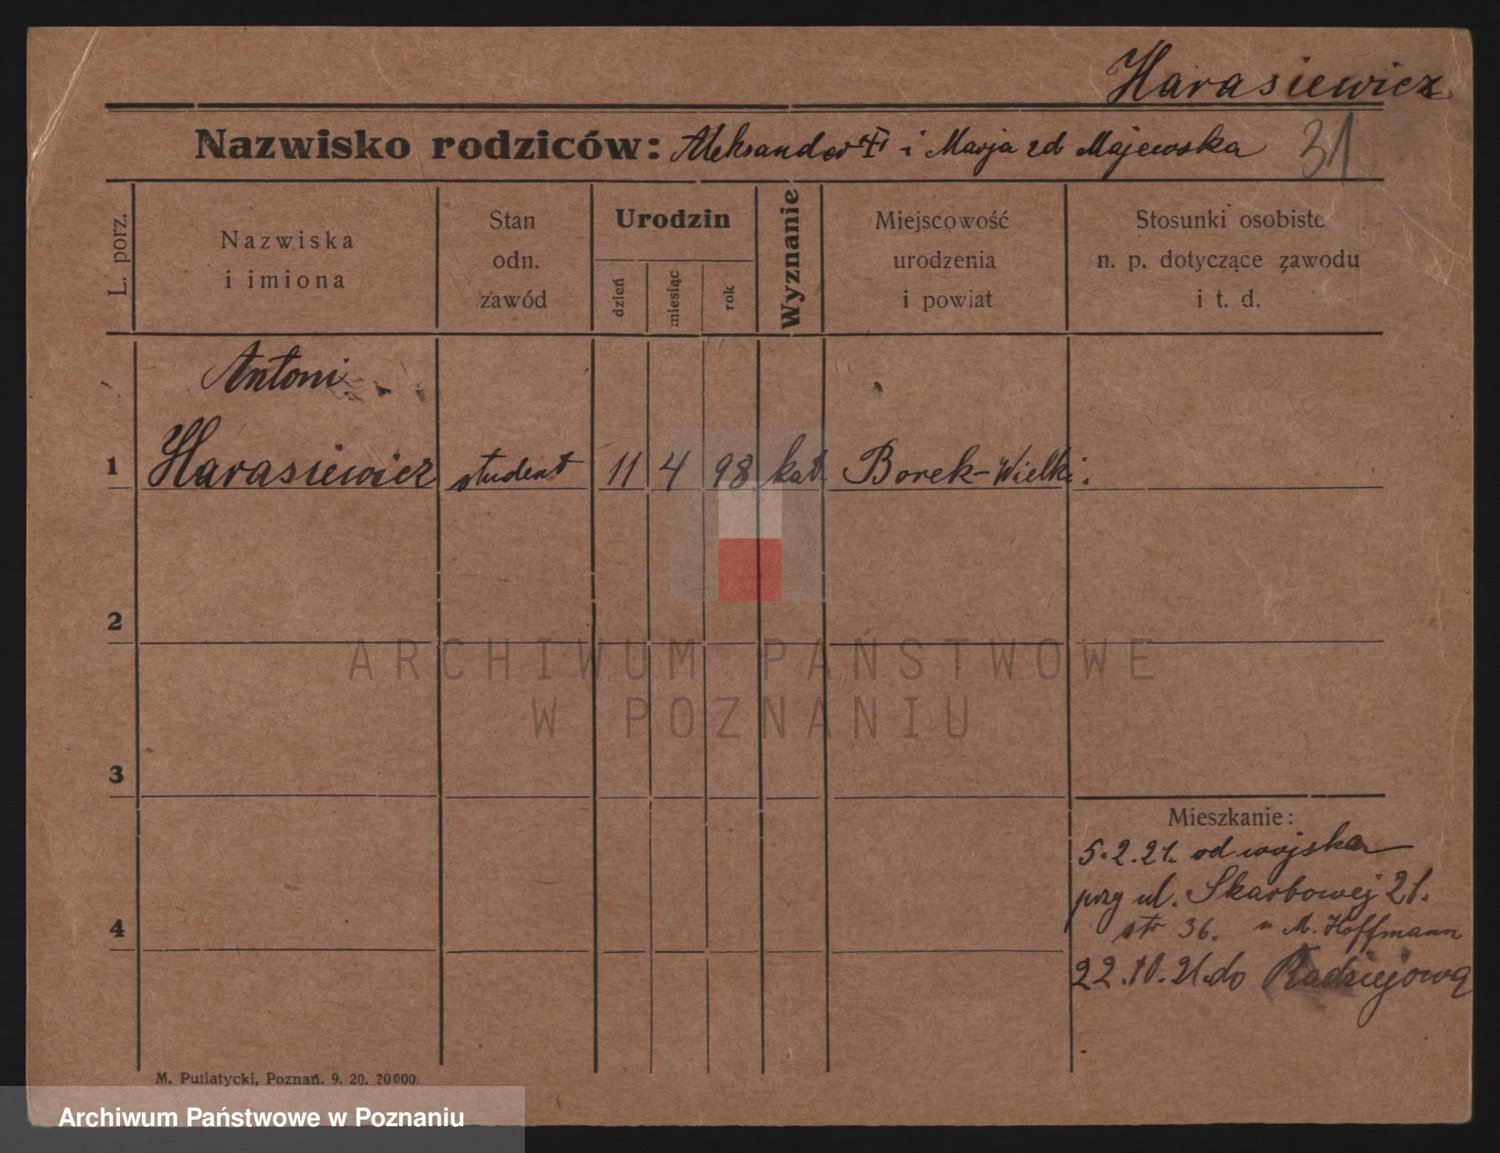 Harasiewicz
Nazwisko rodziców: Aleksander i Marja zd Majewska 31
L. porz.
Nazwiska
i imiona
Stan
odn.
zawód
Urodzin
dzień
miesiąc
rok
Wyznanie
Miejscowość
urodzenia
i powiat
Stosunki osobiste
n. p. dotyczące zawodu
i t. d.
Antoni
1 Harasiewicz student 11 4 98 kat. Borek-Wielki.
2
3
4
Mieszkanie:
5.2.21. od wojska
przy ul. Skarbowej 21.
str 36. u M. Hoffmann
22.10.21. do Radziejową
M. Putiatycki, Poznań. 9. 20. 20000.
ARCHIWUM PAŃSTWOWE
W POZNANIU
Archiwum Państwowe w Poznaniu